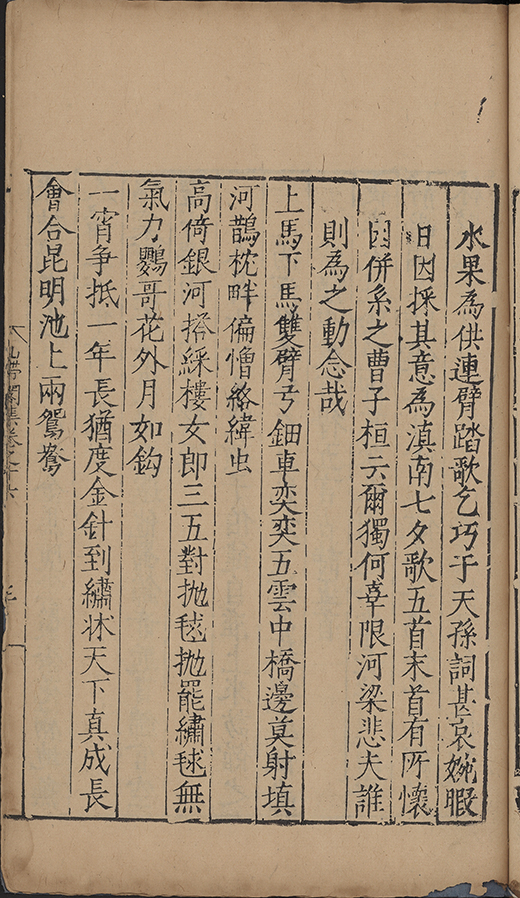 水果為供連臂踏歌乞巧于天孫詞甚哀婉暇
日因採其意為滇南七夕歌五首末首有所懷
因併系之曹子桓云爾獨何辜限河梁悲夫誰
則為之動念哉
上馬下馬雙臂弓鈿車奕奕五雲中橋邊莫射填
河鵲枕畔偏憎絡緯虫
高倚銀河搭綵樓女郎三五對拋毬拋罷繡毬無
氣力鸚哥花外月如鈎
一宵爭抵一年長猶度金針到繡牀天下真成長
會合昆明池上兩鴛鴦
三